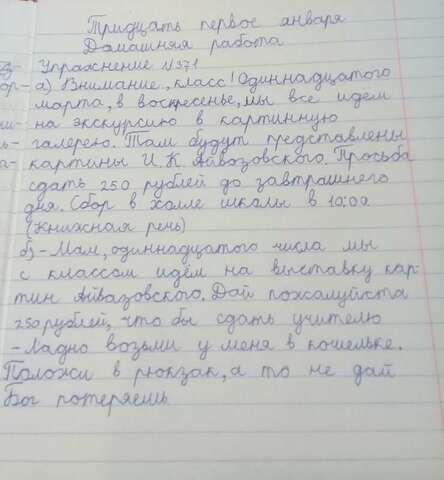 Тридцать первое января
Домашняя работа
Упражнение №371
а) Внимание, класс! Одиннадцатого
марта, в воскресенье, мы все идем
на экскурсию в картинную
галерею. Там будут представлены
картины И. К. Айвазовского. Просьба
сдать 250 рублей до завтрашнего
дня. Сбор в холле школы в 10:00
(Книжная речь)
б) - Мам, одиннадцатого числа мы
с классом идём на выставку кар-
тин Айвазовского. Дай пожалуйста
250 рублей, что бы сдать учителю
- Ладно возьми у меня в кошельке.
Положи в рюкзак, а то не дай
Бог потеряешь